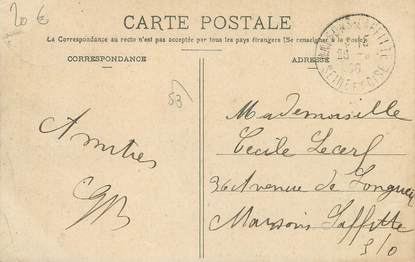 20 €
CARTE POSTALE
La Correspondance au recto n'est pas acceptée par tous les pays étrangers (Se renseigner à la Poste)
CORRESPONDANCE
ADRESSE
MAISONS-LAFFITTE
SEINE-ET-OISE
53
Amitiés
Mademoiselle
Cécile Lecerf
36 Avenue de Longueil
Maisons Laffitte
S/O